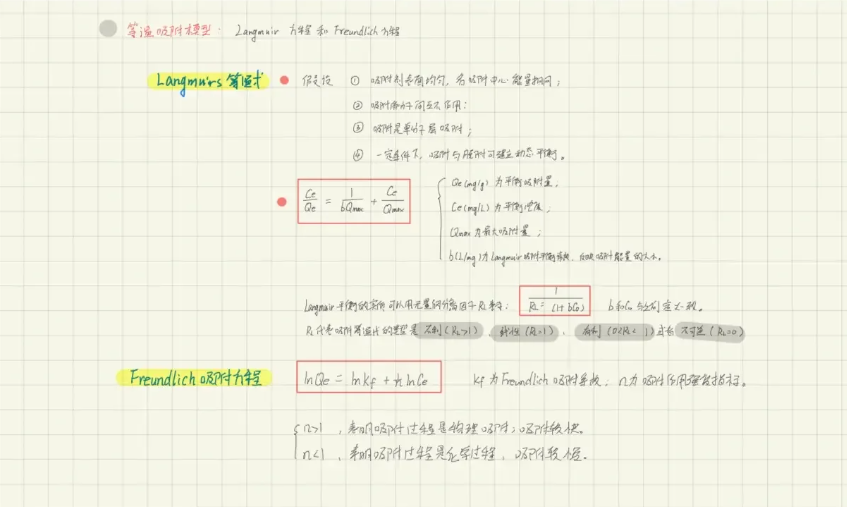 等温吸附模型： Langmuir 方程 和 Freundlich 方程
Langmuirs 等温式
假设 ① 吸附剂表面均匀，各吸附中心能量相同；
② 吸附分子间无作用；
③ 吸附是单分子层吸附；
④ 一定条件下，吸附与脱附可建立动态平衡。
Ce/Qe = 1/bQmax + Ce/Qmax
Qe(mg/g) 为平衡吸附量，
Ce(mg/L) 为平衡浓度；
Qmax 为最大吸附量；
b(L/mg) 为 Langmuir 吸附平衡常数，反映吸附能量的大小。
Langmuir 平衡的 可以用无量纲分离因子 RL 表示：
RL = 1/(1+bC0)
b和C0与
RL 代表吸附等温线的类型是 不利(RL>1)、线性(RL=1)、有利(0<RL<1)或者 不可逆(RL=0)
Freundlich 吸附方程
lnQe = lnkf + 1/n lnCe
kf 为 Freundlich 吸附导数；n为吸附作用强度指标。
n>1，表明吸附过程是物理吸附；吸附较快。
n<1，表明吸附过程是化学过程，吸附较慢。